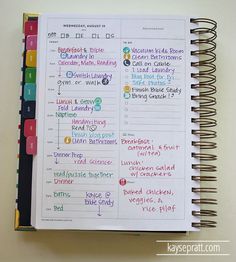 WEDNESDAY, AUGUST 19
Breakfast & Bible
Laundry in
Calendar, Math, Reading
Switch Laundry
gym or walk
Lunch & Grow
Fold Laundry
Naptime
Handwriting
Read to
Finish blog post
Clean Bathrooms
Dinner Prep
read Science
read/puzzle together
Dinner
Baths
Kayse @
Bible Study
Bed
Vacuum Kids Room
Clean Bathrooms
Call on Cable
1 Load Laundry
Blog Post for
Safe Photos
Finish Bible Study
Bring Snack!
Breakfast:
oatmeal & fruit
(w/tea)
Lunch:
chicken salad
w/ crackers
Baked chicken,
veggies, &
rice pilaf
kaysepratt.com